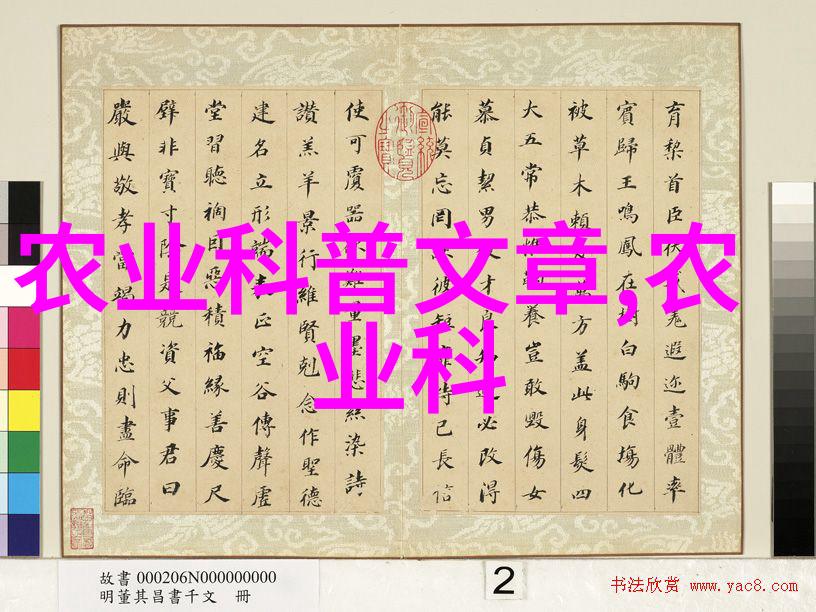 农业科普文章,农
业科
育黎首臣伏羌遐迩壹體率
賓歸王鳴鳳在樹白駒食場化
被草木賴方蓋此身髮四
大五常恭惟養豈敢毀傷女
慕貞絜男才良必改得
能莫忘罔彼短恃己長信
使可覆器難量墨悲絲染詩
讚羔羊景行維賢剋念作聖德
建名立形端表正空谷傳聲虛
堂習聽禍因惡積福緣善慶尺
璧非寶寸陰是競資父事君曰
嚴與敬孝當竭力忠則盡命臨
故書 000206N000000000
明董其昌書千文 冊
2
书法欣赏 www.yac8.com